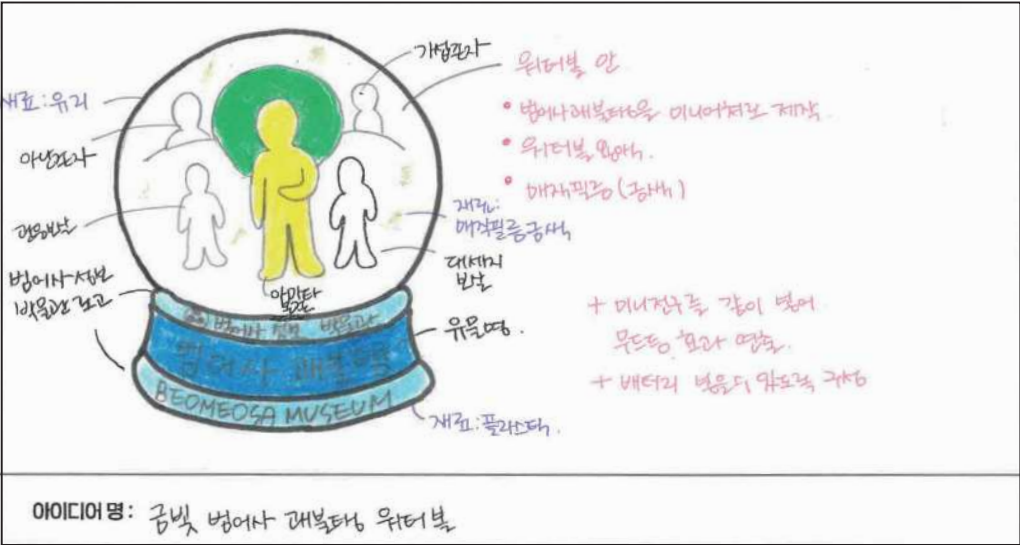 가섭존자
재료: 유리
아난존자
관음보살
범어사 성보
박물관 로고
아미타
불
대세지
보살
유물명.
재료:
매직필름 금색
범어사 성보 박물관
범어사 괘불탱
BEOMEOSA MUSEUM
재료: 플라스틱.
워터볼 안
• 범어사괘불탱을 미니어처로 제작.
• 워터볼 용액.
• 매직필름(금색)
+ 미니전구를 같이 넣어
무드등 효과 연출.
+ 배터리 넣을 수 있도록 구성
아이디어 명: 금빛 범어사 괘불탱 워터볼